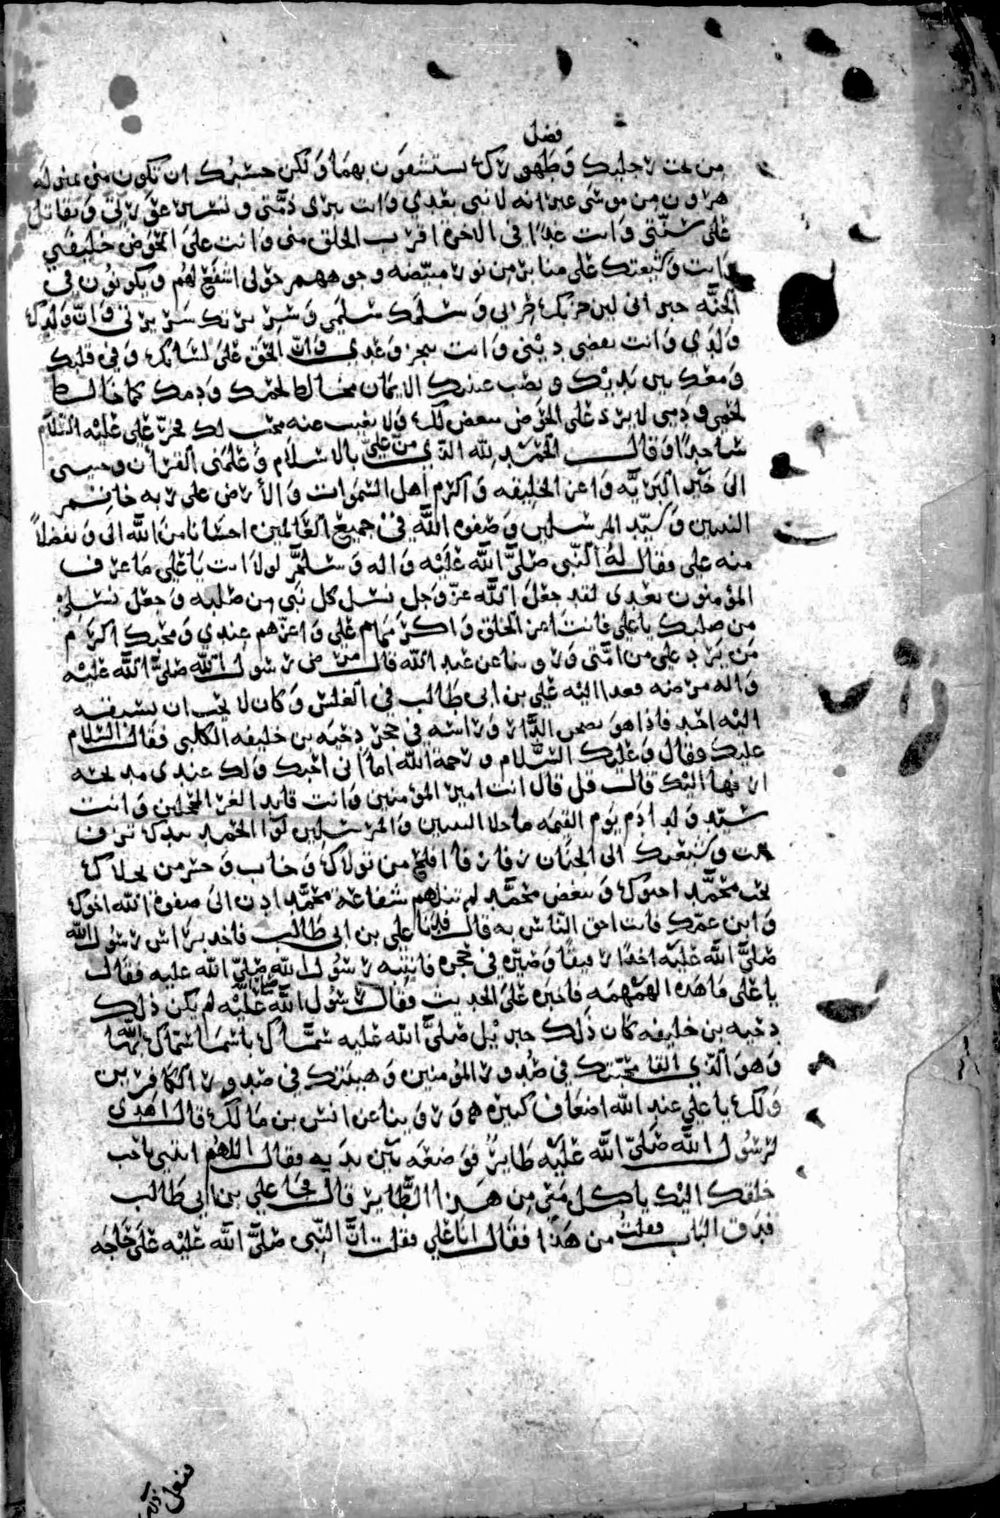 فضل
من تحت رجليك وطهورك يستشفون بهما ولكن حسبك ان تكون مني بمنزلة
هرون من موسى غير انه لا نبي بعدي وانت تبرى ذمتي وتقاتل
على سنتي وانت غدا في الاخرة اقرب الخلق مني وانت على الحوض خليفتي
وانت وشيعتك على منابر من نور مبيضة وجوههم حولي اشفع لهم ويكونون في
الجنة جيراني لان حربك حربي وسلمك سلمي وسريرتك سريرتي وان ولدك
ولدي وانت تقضي ديني وانت تنجز وعدي وان الحق على لسانك وفي قلبك
ومعك بين يديك ونصب عينيك الايمان مخالط لحمك ودمك كما خالط
لحمي ودمي لا يرد على الحوض مبغض لك ولا يغيب عنه محب لك فخر علي عليه السلام
ساجدا وقال الحمد لله الذي من علي بالاسلام وعلمني القران وحببني
الى خير البرية واعز الخليقة واكرم اهل السموات والارض على ربه خاتم
النبيين وسيد المرسلين وصفوة الله في جميع العالمين احسانا من الله الي وتفضلا
منه علي فقال له النبي صلى الله عليه واله وسلم لولا انت يا علي ما عرف
المؤمنون بعدي لقد جعل الله عز وجل نسل كل نبي من صلبه وجعل نسلي
من صلبك يا علي فانت اعز الخلق واكرمهم علي واعزهم عندي ومحبك اكرم
من يرد علي من امتي وروينا عن عبد الله قال مرض رسول الله صلى الله عليه
واله مرضة فغدا اليه علي بن ابي طالب في الغلس وكان لا يحب ان يسبقه
اليه احد فاذا هو بصحن الدار وراسه في حجر دحية بن خليفة الكلبي فقال السلام
عليك فقال وعليك السلام ورحمة الله اما اني احبك ولك عندي مديحة
ازفها اليك قال قل قال انت امير المؤمنين وانت قايد الغر المحجلين وانت
سيد ولد ادم يوم القيمة ما خلا النبيين والمرسلين لوا الحمد بيدك تزف
انت وشيعتك الى الجنان زفا زفا افلح من تولاك وخاب وخسر من تخلاك
بحب محمد احبوك وببغض محمد لم تنلهم شفاعة محمد ادن الى صفوة الله اخوك
وابن عمك فانت احق الناس به قال فدنا علي بن ابي طالب فاخذ براس رسول الله
صلى الله عليه اخذا رفيقا وصيره في حجره فانتبه رسول الله صلى الله عليه فقال
يا علي ما هذه الهمهمة فاخبره علي الحديث فقال رسول الله صلى الله عليه لم يكن ذلك
دحية بن خليفة كان ذلك جبريل صلى الله عليه سماك باسما سماك الله بها
وهو الذي القا محبتك في صدور المؤمنين وهيبتك في صدور الكافرين
ولك يا علي عند الله اضعاف كبيرة وروينا عن انس بن مالك قال اهدي
لرسول الله صلى الله عليه طاير فوضعه بين يديه فقال اللهم ايتني باحب
خلقك اليك ياكل معي من هذا الطاير قال فجا علي بن ابي طالب
فدق الباب فقلت من هذا فقال انا علي فقلت ان النبي صلى الله عليه على حاجة